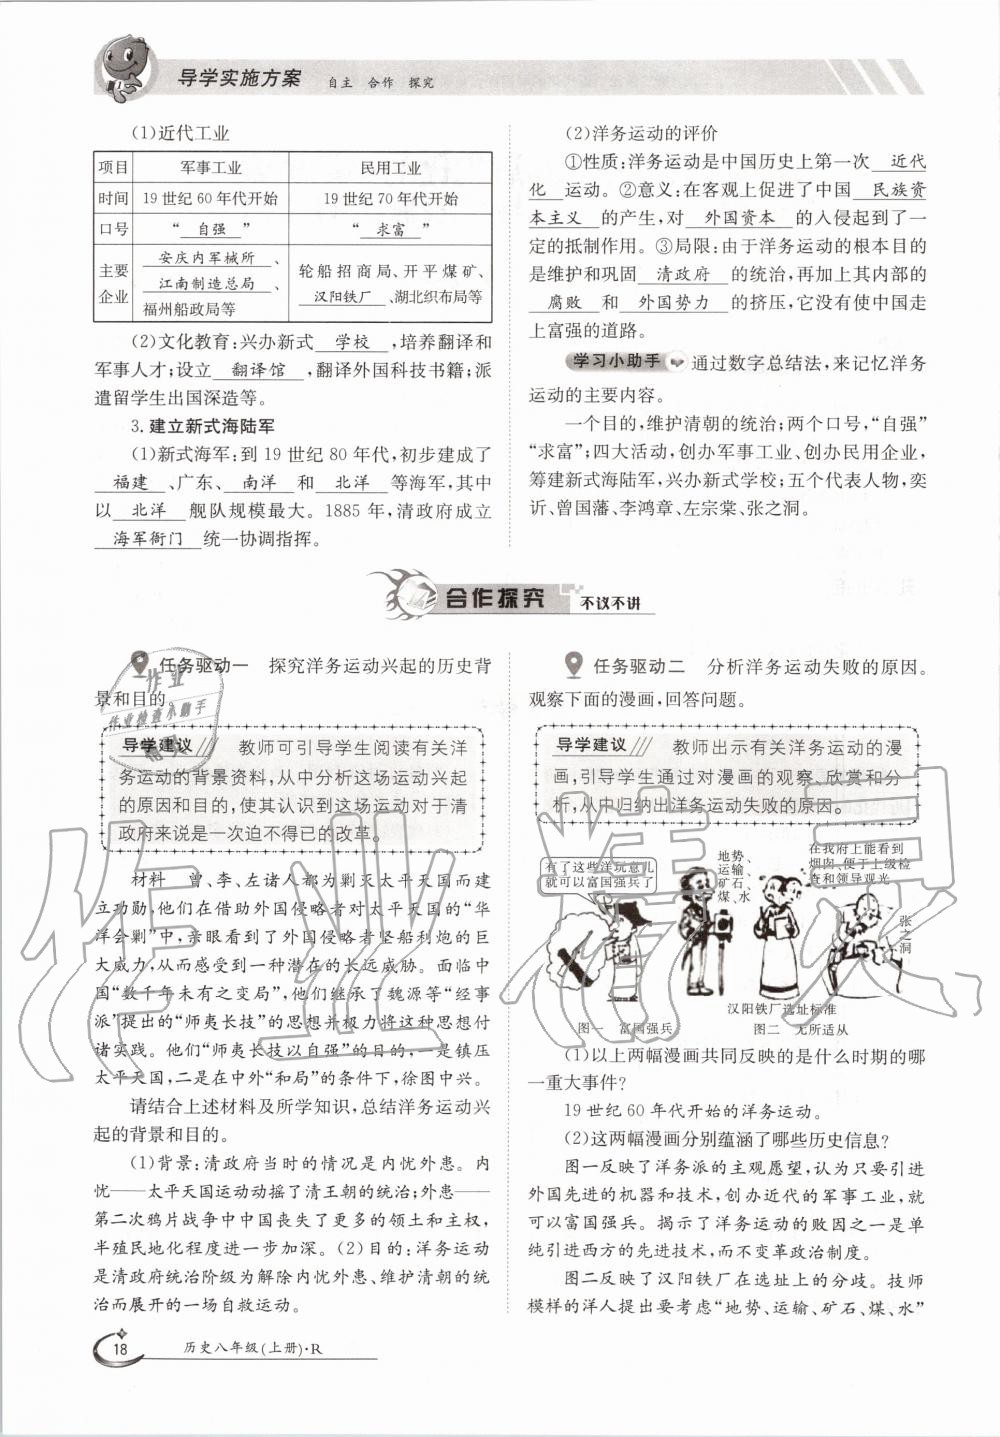 导学实施方案 自主 合作 探究
(1)近代工业
项目 军事工业 民用工业
时间 19世纪60年代开始 19世纪70年代开始
口号 “自强” “求富”
主要企业 安庆内军械所、江南制造总局、福州船政局等 轮船招商局、开平煤矿、汉阳铁厂、湖北织布局等
(2)文化教育:兴办新式 学校 ,培养翻译和
军事人才;设立 翻译馆 ,翻译外国科技书籍;派
遣留学生出国深造等。
3.建立新式海陆军
(1)新式海军:到19世纪80年代,初步建成了
福建 、广东、 南洋 和 北洋 等海军,其中
以 北洋 舰队规模最大。1885年,清政府成立
海军衙门 统一协调指挥。
(2)洋务运动的评价
①性质:洋务运动是中国历史上第一次 近代
化 运动。②意义:在客观上促进了中国 民族资
本主义 的产生,对 外国资本 的入侵起到了一
定的抵制作用。③局限:由于洋务运动的根本目的
是维护和巩固 清政府 的统治,再加上其内部的
腐败 和 外国势力 的挤压,它没有使中国走
上富强的道路。
学习小助手 通过数字总结法,来记忆洋务
运动的主要内容。
一个目的,维护清朝的统治;两个口号,“自强”
“求富”;四大活动,创办军事工业、创办民用企业,
筹建新式海陆军,兴办新式学校;五个代表人物,奕
䜣、曾国藩、李鸿章、左宗棠、张之洞。
合作探究 不议不讲
任务驱动一 探究洋务运动兴起的历史背
景和目的。
导学建议 教师可引导学生阅读有关洋
务运动的背景资料,从中分析这场运动兴起
的原因和目的,使其认识到这场运动对于清
政府来说是一次迫不得已的改革。
材料 曾、李、左诸人都为剿灭太平天国而建
立功勋,他们在借助外国侵略者对太平天国的“华
洋会剿”中,亲眼看到了外国侵略者坚船利炮的巨
大威力,从而感受到一种潜在的长远威胁。面临中
国“数千年未有之变局”,他们继承了魏源等“经事
派”提出的“师夷长技”的思想并极力将这种思想付
诸实践。他们“师夷长技以自强”的目的,一是镇压
太平天国,二是在对外“和局”的条件下,徐图中兴。
请结合上述材料及所学知识,总结洋务运动兴
起的背景和目的。
(1)背景:清政府当时的情况是内忧外患。内
忧——太平天国运动动摇了清王朝的统治;外患——
第二次鸦片战争中中国丧失了更多的领土和主权,
半殖民地化程度进一步加深。(2)目的:洋务运动
是清政府统治阶级为解除内忧外患、维护清朝的统
治而展开的一场自救运动。
任务驱动二 分析洋务运动失败的原因。
观察下面的漫画,回答问题。
导学建议 教师出示有关洋务运动的漫
画,引导学生通过对漫画的观察、欣赏和分
析,从中归纳出洋务运动失败的原因。
有了这些洋玩意儿
就可以富国强兵了
地势、
运输、
矿石、
煤、水
在我府上能看到
烟囱,便于上级检
查和领导观光
张之洞
汉阳铁厂选址标准
图一 富国强兵 图二 无所适从
(1)以上两幅漫画共同反映的是什么时期的哪
一重大事件?
19世纪60年代开始的洋务运动。
(2)这两幅漫画分别蕴涵了哪些历史信息?
图一反映了洋务派的主观愿望,认为只要引进
外国先进的机器和技术,创办近代的军事工业,就
可以富国强兵。揭示了洋务运动的败因之一是单
纯引进西方的先进技术,而不变革政治制度。
图二反映了汉阳铁厂在选址上的分歧。技师
模样的洋人提出要考虑“地势、运输、矿石、煤、水”
18 历史八年级(上册)·R
作业
作业检查小助手
精灵
作业精灵